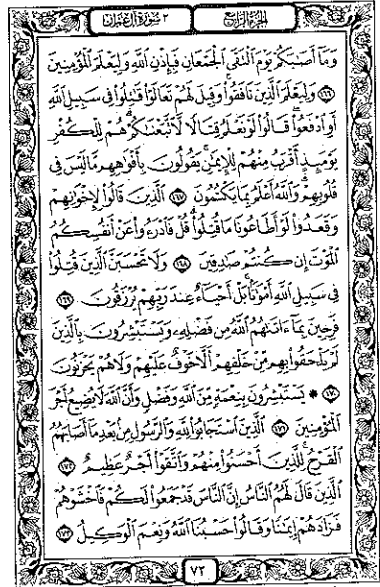 ٣ سورة آل عمران
الجزء الرابع
وَمَآ أَصَٰبَكُمْ يَوْمَ ٱلْتَقَى ٱلْجَمْعَانِ فَبِإِذْنِ ٱللَّهِ وَلِيَعْلَمَ ٱلْمُؤْمِنِينَ
١٦٦ وَلِيَعْلَمَ ٱلَّذِينَ نَافَقُوا۟ وَقِيلَ لَهُمْ تَعَالَوْا۟ قَٰتِلُوا۟ فِى سَبِيلِ ٱللَّهِ
أَوِ ٱدْفَعُوا۟ قَالُوا۟ لَوْ نَعْلَمُ قِتَالًا لَّٱتَّبَعْنَٰكُمْ هُمْ لِلْكُفْرِ
يَوْمَئِذٍ أَقْرَبُ مِنْهُمْ لِلْإِيمَٰنِ يَقُولُونَ بِأَفْوَٰهِهِم مَّا لَيْسَ فِى
قُلُوبِهِمْ وَٱللَّهُ أَعْلَمُ بِمَا يَكْتُمُونَ ١٦٧ ٱلَّذِينَ قَالُوا۟ لِإِخْوَٰنِهِمْ
وَقَعَدُوا۟ لَوْ أَطَاعُونَا مَا قُتِلُوا۟ قُلْ فَٱدْرَءُوا۟ عَنْ أَنفُسِكُمُ
ٱلْمَوْتَ إِن كُنتُمْ صَٰدِقِينَ ١٦٨ وَلَا تَحْسَبَنَّ ٱلَّذِينَ قُتِلُوا۟
فِى سَبِيلِ ٱللَّهِ أَمْوَٰتًۢا بَلْ أَحْيَآءٌ عِندَ رَبِّهِمْ يُرْزَقُونَ ١٦٩
فَرِحِينَ بِمَآ ءَاتَىٰهُمُ ٱللَّهُ مِن فَضْلِهِۦ وَيَسْتَبْشِرُونَ بِٱلَّذِينَ
لَمْ يَلْحَقُوا۟ بِهِم مِّنْ خَلْفِهِمْ أَلَّا خَوْفٌ عَلَيْهِمْ وَلَا هُمْ يَحْزَنُونَ
١٧٠ * يَسْتَبْشِرُونَ بِنِعْمَةٍ مِّنَ ٱللَّهِ وَفَضْلٍ وَأَنَّ ٱللَّهَ لَا يُضِيعُ أَجْرَ
ٱلْمُؤْمِنِينَ ١٧١ ٱلَّذِينَ ٱسْتَجَابُوا۟ لِلَّهِ وَٱلرَّسُولِ مِنۢ بَعْدِ مَآ أَصَابَهُمُ
ٱلْقَرْحُ لِلَّذِينَ أَحْسَنُوا۟ مِنْهُمْ وَٱتَّقَوْا۟ أَجْرٌ عَظِيمٌ ١٧٢
ٱلَّذِينَ قَالَ لَهُمُ ٱلنَّاسُ إِنَّ ٱلنَّاسَ قَدْ جَمَعُوا۟ لَكُمْ فَٱخْشَوْهُمْ
فَزَادَهُمْ إِيمَٰنًا وَقَالُوا۟ حَسْبُنَا ٱللَّهُ وَنِعْمَ ٱلْوَكِيلُ ١٧٣
٧٢